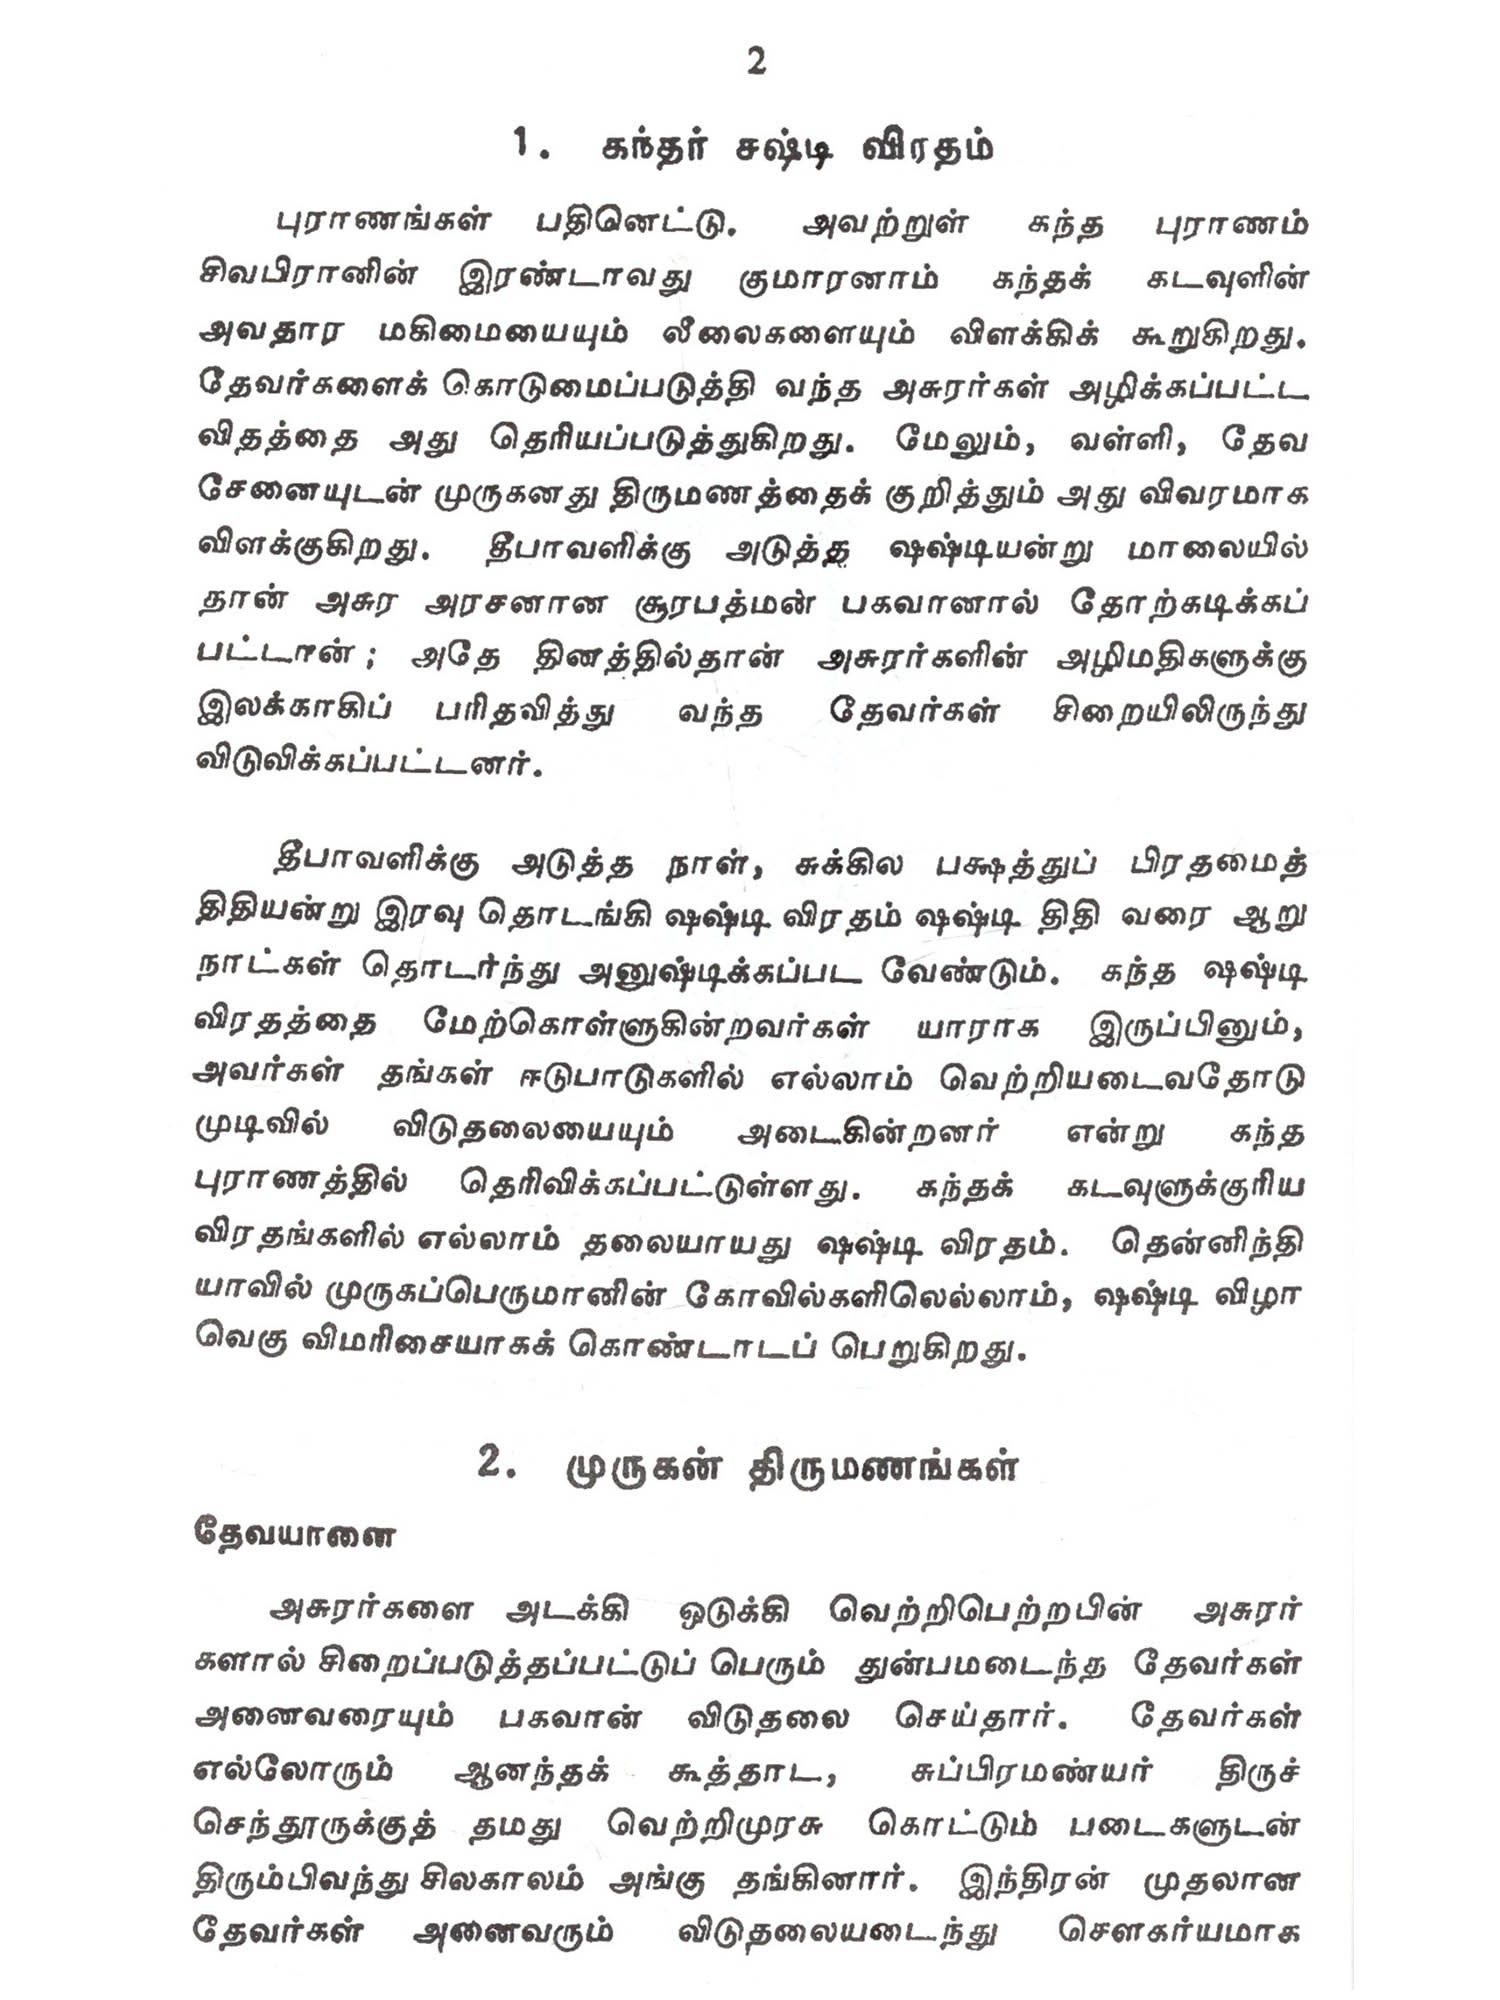 2
1. கந்தர் சஷ்டி விரதம்
புராணங்கள் பதினெட்டு. அவற்றுள் கந்த புராணம்
சிவபிரானின் இரண்டாவது குமாரனாம் கந்தக் கடவுளின்
அவதார மகிமையையும் லீலைகளையும் விளக்கிக் கூறுகிறது.
தேவர்களைக் கொடுமைப்படுத்தி வந்த அசுரர்கள் அழிக்கப்பட்ட
விதத்தை அது தெரியப்படுத்துகிறது. மேலும், வள்ளி, தேவ
சேனையுடன் முருகனது திருமணத்தைக் குறித்தும் அது விவரமாக
விளக்குகிறது. தீபாவளிக்கு அடுத்த ஷஷ்டியன்று மாலையில்
தான் அசுர அரசனான சூரபத்மன் பகவானால் தோற்கடிக்கப்
பட்டான்; அதே தினத்தில்தான் அசுரர்களின் அழிமதிகளுக்கு
இலக்காகிப் பரிதவித்து வந்த தேவர்கள் சிறையிலிருந்து
விடுவிக்கப்பட்டனர்.
தீபாவளிக்கு அடுத்த நாள், சுக்கில பக்ஷத்துப் பிரதமைத்
திதியன்று இரவு தொடங்கி ஷஷ்டி விரதம் ஷஷ்டி திதி வரை ஆறு
நாட்கள் தொடர்ந்து அனுஷ்டிக்கப்பட வேண்டும். கந்த ஷஷ்டி
விரதத்தை மேற்கொள்ளுகின்றவர்கள் யாராக இருப்பினும்,
அவர்கள் தங்கள் ஈடுபாடுகளில் எல்லாம் வெற்றியடைவதோடு
முடிவில் விடுதலையையும் அடைகின்றனர் என்று கந்த
புராணத்தில் தெரிவிக்கப்பட்டுள்ளது. கந்தக் கடவுளுக்குரிய
விரதங்களில் எல்லாம் தலையாயது ஷஷ்டி விரதம். தென்னிந்தி
யாவில் முருகப்பெருமானின் கோவில்களிலெல்லாம், ஷஷ்டி விழா
வெகு விமரிசையாகக் கொண்டாடப் பெறுகிறது.
2. முருகன் திருமணங்கள்
தேவயானை
அசுரர்களை அடக்கி ஒடுக்கி வெற்றிபெற்றபின் அசுரர்
களால் சிறைப்படுத்தப்பட்டுப் பெரும் துன்பமடைந்த தேவர்கள்
அனைவரையும் பகவான் விடுதலை செய்தார். தேவர்கள்
எல்லோரும் ஆனந்தக் கூத்தாட, சுப்பிரமண்யர் திருச்
செந்தூருக்குத் தமது வெற்றிமுரசு கொட்டும் படைகளுடன்
திரும்பிவந்து சிலகாலம் அங்கு தங்கினார். இந்திரன் முதலான
தேவர்கள் அனைவரும் விடுதலையடைந்து சௌகர்யமாக